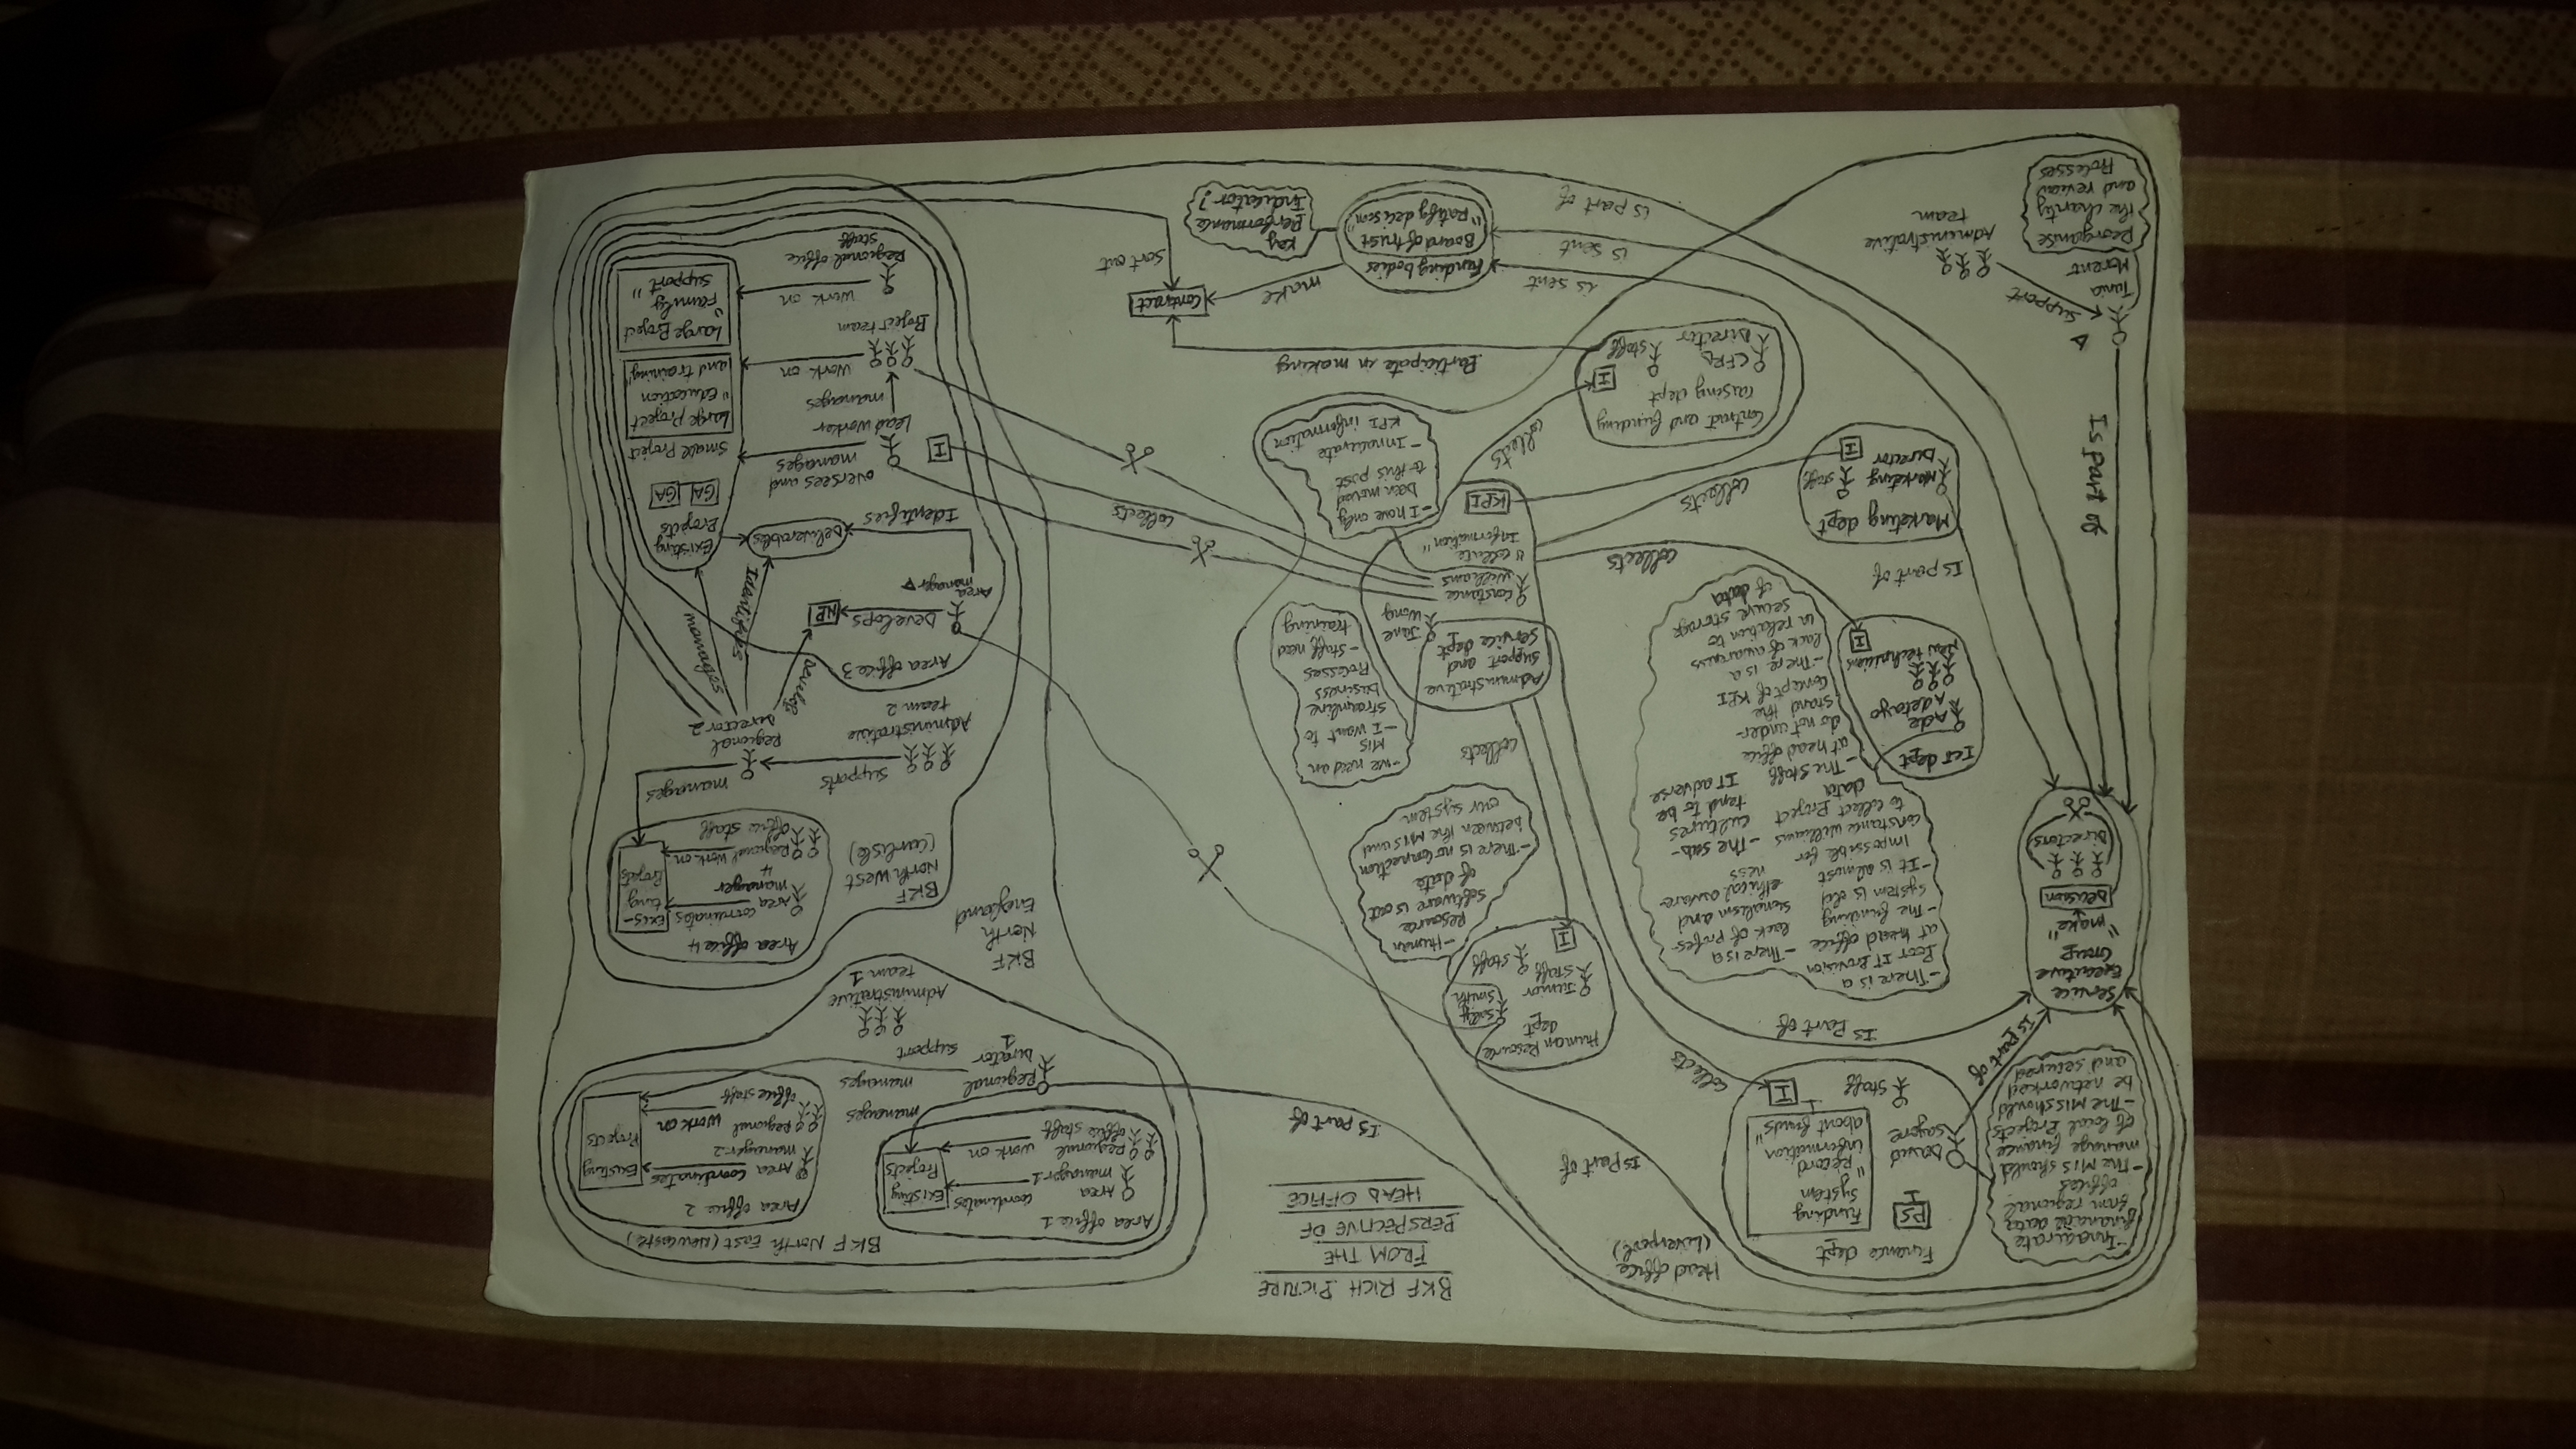 BKF RICH PICTURE
FROM THE
PERSPECTIVE OF
HEAD OFFICE
Head office
(Liverpool)
-Innacurate
financial data
from regional
offices
-The MIS should
manage finance
of local Projects
-The MIS should
be networked
and secured
Finance dept
PS
Funding
System
"Record
information
about funds"
David
Sayore
Staff
I
collects
Is part of
Is part of
Is Part of
Is part of
Service
Executive
Group
"make"
Decision
Directors
-There is a
Poor IT Provision
at head office
-The funding
system is old
-It is almost
impossible for
Constance Williams
to collect Project
data
-The staff
at head office
do not under-
stand the
concept of KPI
-There is a
lack of awareness
in relation to
secure storage
of data
-There is a
lack of profes-
sionalism and
ethical aware-
ness
-The sub-
cultures
tend to be
IT adverse
Human Resource
dept
Sally
Smith
Junior
Staff
Staff
I
-Human
Resource
software is out
of date
-There is no connection
between the MIS and
our system
collects
-We need an
MIS
-I want to
streamline
business
Processes
-Staff need
training
ICT dept
Ade
Adetayo
New technicians
I
collects
Administrative
support and
Service dept
Jane
Wong
Constance
Williams
"collate
Information"
KPI
-I have only
been moved
to this post
-Innacurate
KPI information
Is part of
Marketing dept
Marketing
Director
staff
I
collects
collects
Contract and funding
raising dept
CFRD
Director
Staff
I
Participate in making
Contract
make
Sort out
is sent
is sent
is part of
Funding bodies
Board of trust
"Ratify decision"
Key
Performance
Indicator?
Is part of
Tania
Morent
support
Administrative
team
Reorganise
the charity
and review
Processes
BKF North East (Newcastle)
Area office 1
Area
manager 1
coordinates
Existing
Projects
Regional
office staff
work on
Area office 2
Area
manager 2
coordinates
Existing
Projects
Regional
office staff
Work on
manages
manages
Regional
Director
1
support
Administrative
team 1
BKF
North
England
BKF
North West
(Carlisle)
Area office 4
Area
manager
4
coordinates
Exis-
ting
Projects
Regional
office staff
Work on
Administrative
team 2
supports
Regional
Director 2
manages
Develops
Identifies
manages
Area office 3
Area
manager
Develops
NP
Identifies
Deliverables
Existing
Projects
GA GA
collects
I
Lead Worker
oversees and
manages
manages
Project team
Work on
Small Project
Large Project
"Education
and training"
Large Project
"Family
support"
Regional office
staff
Work on